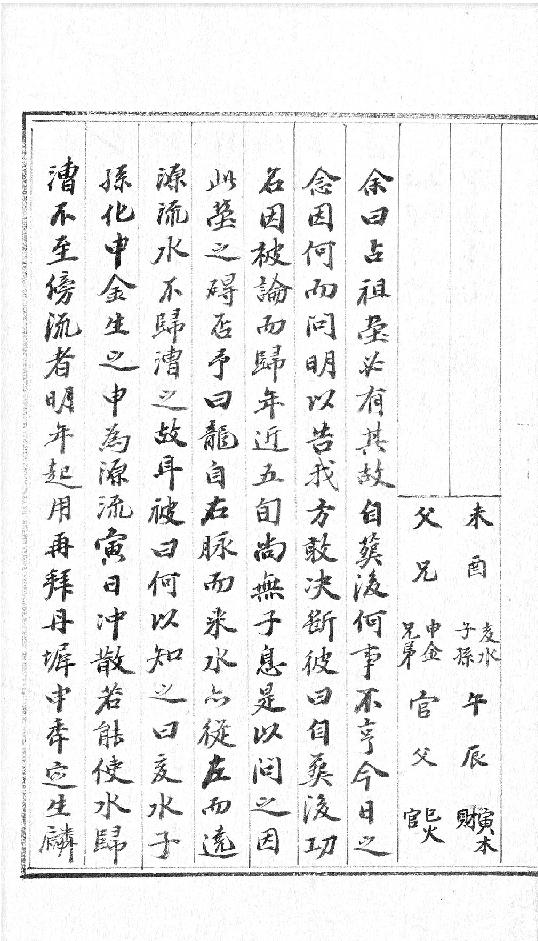 未 酉 亥水子孫 午 辰 寅木財
父 兄 申金兄弟 官 父 巳火官
余曰占祖塋必有其故自葬後何事不亨今日之
念因何而問明以告我方敢决斷彼曰自葬後功
名因被論而歸年近五旬尚無子息是以問之因
此塋之碍否予曰龍自右脉而来水亦從左而遶
源流水不歸漕之故耳彼曰何以知之曰亥水子
孫化申金生之申為源流寅日冲散若能使水歸
漕不至傍流者明年起用再拜丹墀申年定生麟